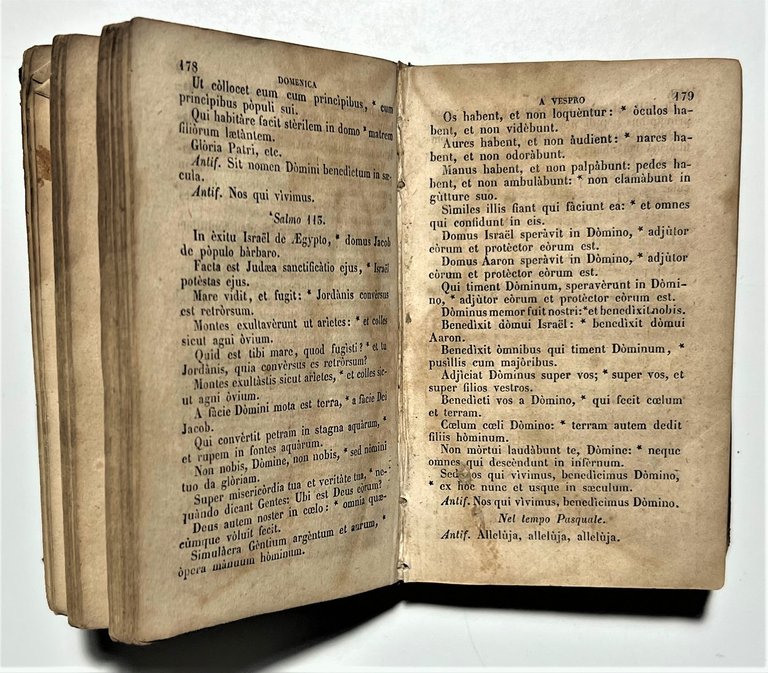 178
DOMENICA
Ut còllocet eum cum princìpibus, * cum
princìpibus pòpuli sui.
Qui habitàre facit stèrilem in domo * matrem
filiòrum lætàntem.
Glòria Patri, etc.
Antif. Sit nomen Dòmini benedìctum in sæ-
cula.
Antif. Nos qui vìvimus.
Salmo 113.
In èxitu Israël de Ægypto, * domus Jacob
de pòpulo bàrbaro.
Facta est Judæa sanctificàtio ejus, * Israël
potèstas ejus.
Mare vidit, et fugit: * Jordànis convèrsus
est retròrsum.
Montes exultavèrunt ut arìetes: * et colles
sicut agni òvium.
Quid est tibi mare, quod fugìsti? * et tu
Jordànis, quia convèrsus es retròrsum?
Montes exultàstis sicut arìetes, * et colles sic-
ut agni òvium.
A fàcie Dòmini mota est terra, * a fàcie Dei
Jacob.
Qui convèrtit petram in stagna aquàrum, *
et rupem in fontes aquàrum.
Non nobis, Dòmine, non nobis, * sed nòmini
tuo da glòriam.
Super misericòrdia tua et veritàte tua, * ne-
quàndo dicant Gentes: Ubi est Deus eòrum?
Deus autem noster in cœlo: * omnia quæ-
cùmque vòluit fecit.
Simulàcra Gèntium argèntum et aurum, *
òpera mànuum hòminum.
A VESPRO
179
Os habent, et non loquèntur: * òculos ha-
bent, et non vidèbunt.
Aures habent, et non àudient: * nares ha-
bent, et non odoràbunt.
Manus habent, et non palpàbunt: pedes ha-
bent, et non ambulàbunt: * non clamàbunt in
gùtture suo.
Sìmiles illis fiant qui fàciunt ea: * et omnes
qui confìdunt in eis.
Domus Israël speràvit in Dòmino, * adjùtor
eòrum et protèctor eòrum est.
Domus Aaron speràvit in Dòmino, * adjùtor
eòrum et protèctor eòrum est.
Qui timent Dòminum, speravèrunt in Dòmi-
no, * adjùtor eòrum et protèctor eòrum est.
Dòminus memor fuit nostri: * et benedìxit nobis.
Benedìxit dòmui Israël: * benedìxit dòmui
Aaron.
Benedìxit òmnibus qui timent Dòminum, *
pusìllis cum majòribus.
Adjìciat Dòminus super vos; * super vos, et
super filios vestros.
Benedìcti vos a Dòmino, * qui fecit cœlum
et terram.
Cœlum cœli Dòmino: * terram autem dedit
fìliis hòminum.
Non mòrtui laudàbunt te, Dòmine: * neque
omnes qui descèndunt in infèrnum.
Sed nos qui vìvimus, benedìcimus Dòmino,
* ex hoc nunc et usque in sæculum.
Antif. Nos qui vìvimus, benedìcimus Dòmino.
Nel tempo Pasquale.
Antif. Allelùja, allelùja, allelùja.